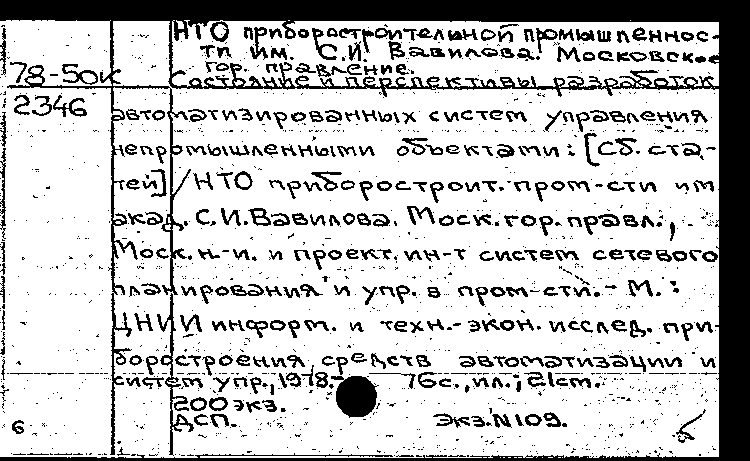 НТО приборостроительной промышленнос-
ти им. С.И. Вавилова. Московское
гор. правление.
78-50к Состояние и перспективы разработок
2346 автоматизированных систем управления
непромышленными объектами: [Сб. ста-
тей] / НТО приборостроит. пром-сти им
акад. С.И. Вавилова. Моск. гор. правл.,
Моск. н.-и. и проект. ин-т систем сетевого
планирования и упр. в пром-сти. - М.:
ЦНИИ информ. и техн.-экон. исслед. при-
боростроения, средств автоматизации и
систем упр., 1978.- 76с., ил.; 21см.
200 экз.
6 ДСП. Экз. N109.